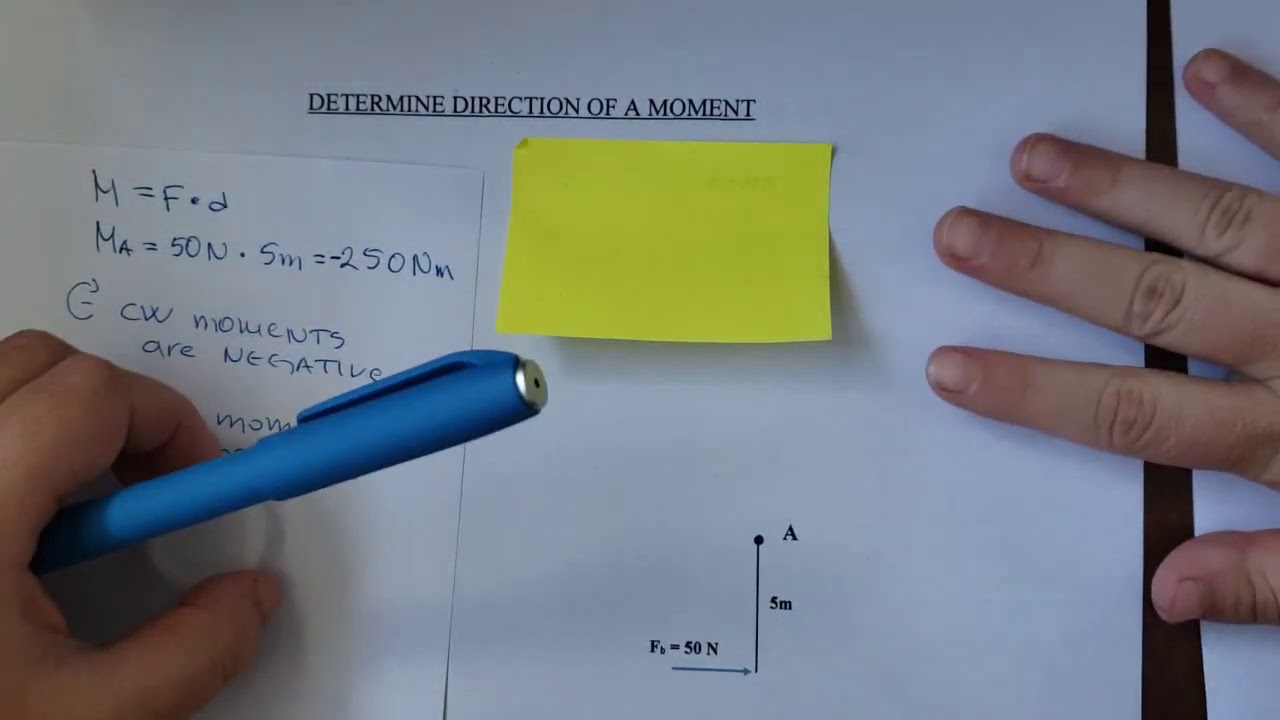 DETERMINE DIRECTION OF A MOMENT
M = F • d
MA = 50N • 5m = -250Nm
CW MOMENTS
are NEGATIVE
A
5m
Fb = 50 N